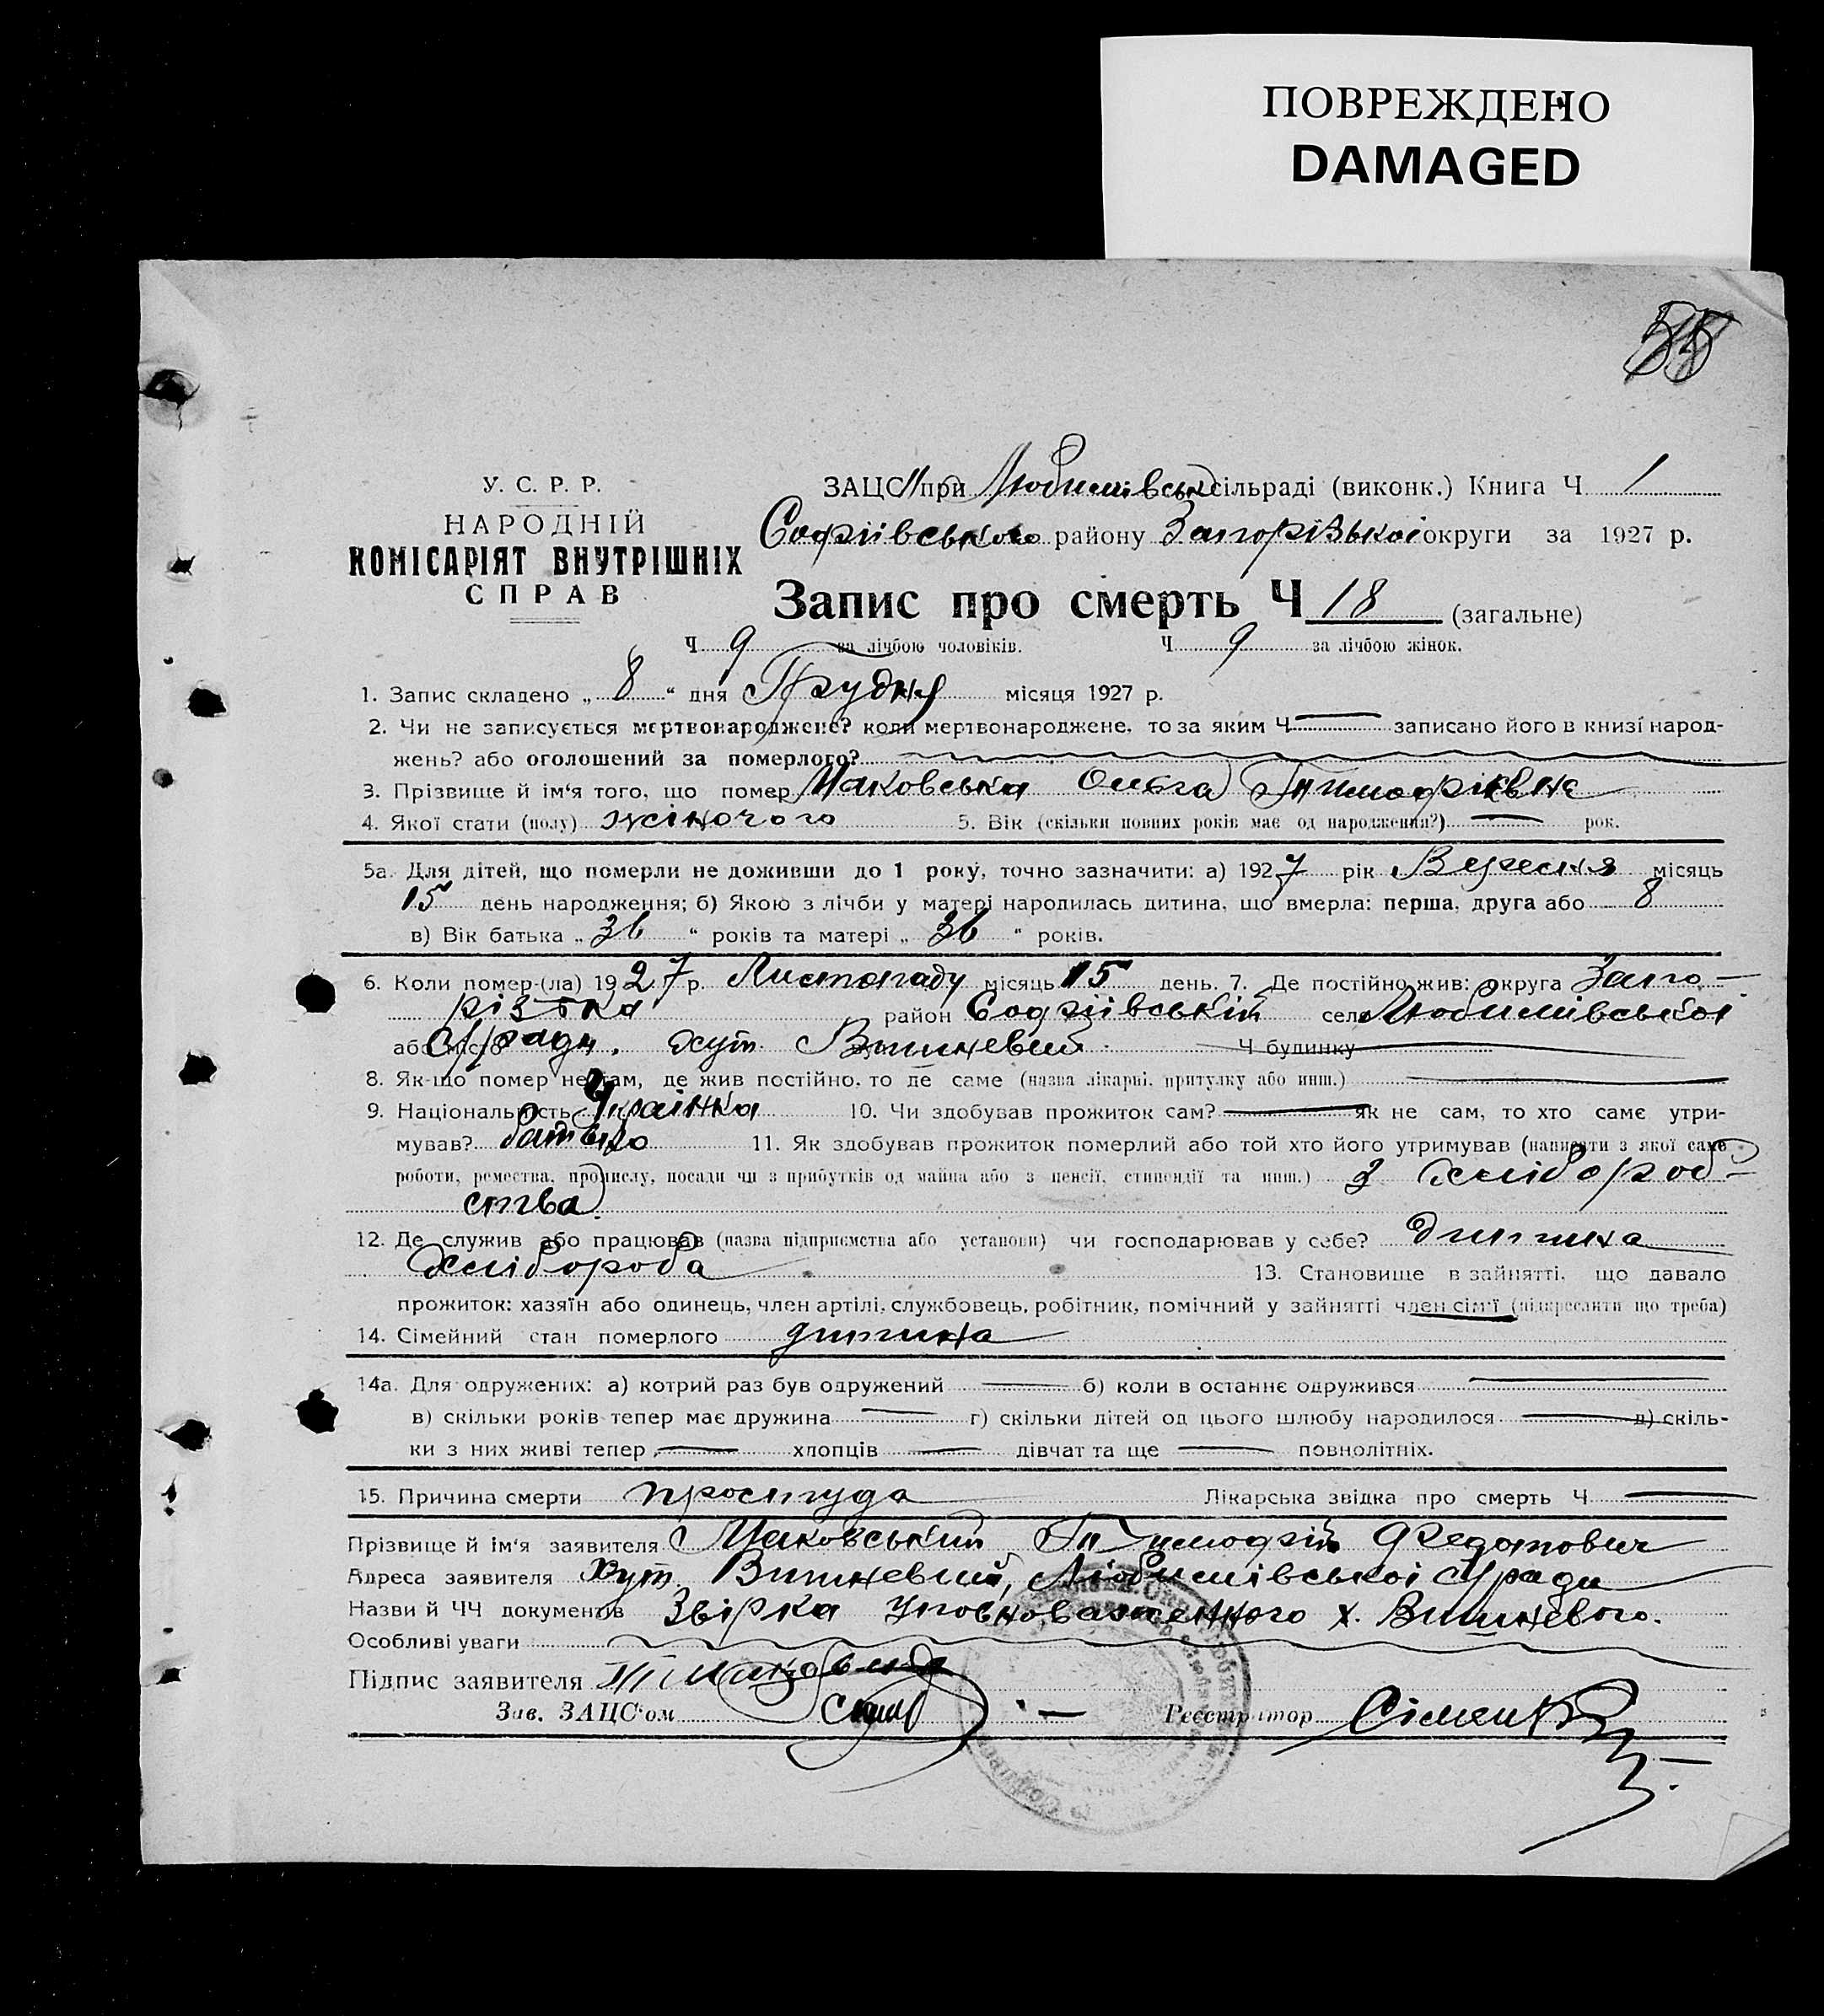 ПОВРЕЖДЕНО
DAMAGED
55
У. С. Р. Р.
НАРОДНІЙ
КОМІСАРІЯТ ВНУТРІШНІХ
СПРАВ
ЗАЦС'і при Любимівськ сільраді (виконк.) Книга Ч 1
Софіівського району Запорізькоі округи за 1927 р.
Запис про смерть Ч 18 (загальне)
Ч 9 за лічбою чоловіків. Ч 9 за лічбою жінок.
1. Запис складено „ 8 “ дня Грудня місяця 1927 р.
2. Чи не записується мертвонароджене? коли мертвонароджене, то за яким Ч записано його в книзі народ-
жень? або оголошений за померлого?
3. Прізвище й ім'я того, що помер Маковська Ольга Тимофієвна
4. Якої стати (полу) жіночого 5. Вік (скільки повних років має од народження?) рок.
5а. Для дітей, що померли не доживши до 1 року, точно зазначити: а) 1927 рік Вересня місяць
15 день народження; б) Якою з лічби у матері народилась дитина, що вмерла: перша, друга або 8
в) Вік батька „ 36 “ років та матері „ 36 “ років.
6. Коли помер-(ла) 1927 р. Листопаду місяць 15 день. 7. Де постійно жив: округа Запо-
різька район Софіівській село Любимівськоі
або місто с/ради, хут. Вишневий Ч будинку
8. Як-що помер не там, де жив постійно, то де саме (назва лікарні, притулку або инш.)
9. Національність Украінка 10. Чи здобував прожиток сам? як не сам, то хто саме утри-
мував? батько 11. Як здобував прожиток померлий або той хто його утримував (написати з якої саме
роботи, ремества, промислу, посади чи з прибутків од майна або з пенсії, стипендії та инш.) З хлібороб-
ства
12. Де служив або працював (назва підприємства або установи) чи господарював у себе? дитина
хлібороба 13. Становище в зайнятті, що давало
прожиток: хазяїн або одинець, член артілі, службовець, робітник, помічний у зайнятті член сім'ї (підкреслити що треба)
14. Сімейний стан померлого дитина
14а. Для одружених: а) котрий раз був одружений б) коли в останнє одружився
в) скільки років тепер має дружина г) скільки дітей од цього шлюбу народилося д) скіль-
ки з них живі тепер хлопців дівчат та ще повнолітніх.
15. Причина смерти простуда Лікарська звідка про смерть Ч
Прізвище й ім'я заявителя Маковський Тимофій Федотович
Адреса заявителя Хут Вишневий, Любимівськоі с/ради
Назви й ЧЧ документів Звірка уповноваженного х. Вишневого.
Особливі уваги
Підпис заявителя
Зав. ЗАЦС'ом Реєстратор Сіменко